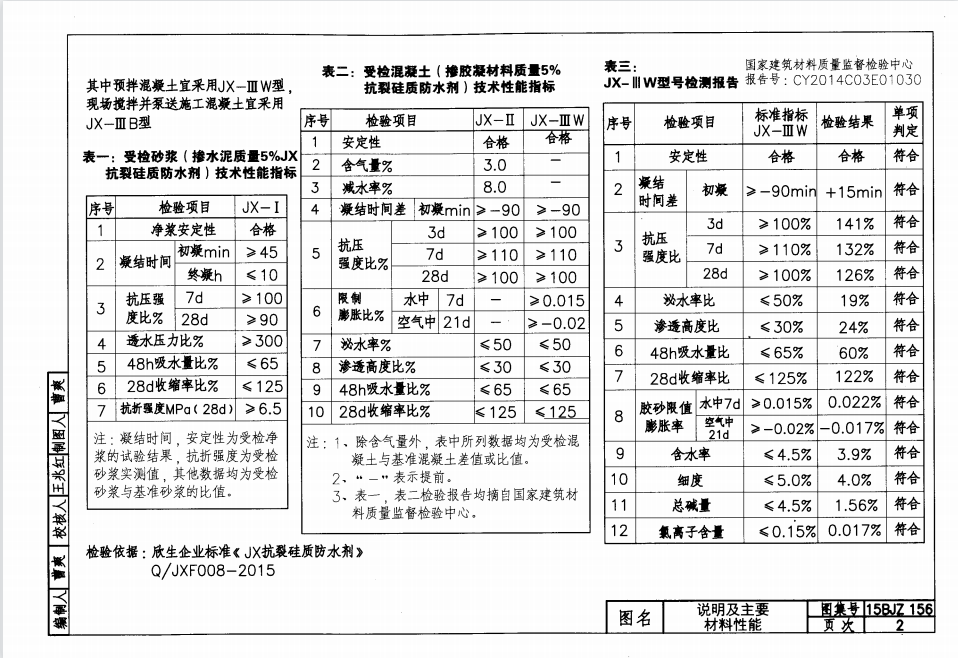 其中预拌混凝土宜采用JX-ⅢW型,
现场搅拌并泵送施工混凝土宜采用
JX-ⅢB型
表一：受检砂浆（掺水泥质量5%JX
抗裂硅质防水剂）技术性能指标
序号 检验项目 JX-Ⅰ
1 净浆安定性 合格
2 凝结时间 初凝min ≥45
终凝h ≤10
3 抗压强度比% 7d ≥100
28d ≥90
4 透水压力比% ≥300
5 48h吸水量比% ≤65
6 28d收缩率比% ≤125
7 抗折强度MPa(28d) ≥6.5
注：凝结时间，安定性为受检净
浆的试验结果，抗折强度为受检
砂浆实测值，其他数据均为受检
砂浆与基准砂浆的比值。
检验依据：欣生企业标准《JX抗裂硅质防水剂》
Q/JXF008-2015
表二：受检混凝土（掺胶凝材料质量5%
抗裂硅质防水剂）技术性能指标
序号 检验项目 JX-Ⅱ JX-ⅢW
1 安定性 合格 合格
2 含气量% 3.0 —
3 减水率% 8.0 —
4 凝结时间差 初凝min ≥-90 ≥-90
5 抗压强度比% 3d ≥100 ≥100
7d ≥110 ≥110
28d ≥100 ≥100
6 限制膨胀比% 水中 7d — ≥0.015
空气中 21d — ≥-0.02
7 泌水率% ≤50 ≤50
8 渗透高度比% ≤30 ≤30
9 48h吸水量比% ≤65 ≤65
10 28d收缩率比% ≤125 ≤125
注：1、除含气量外，表中所列数据均为受检混
凝土与基准混凝土差值或比值。
2、“—”表示提前。
3、表一，表二检验报告均摘自国家建筑材
料质量监督检验中心。
表三： 国家建筑材料质量监督检验中心
JX-ⅢW型号检测报告 报告号：CY2014C03E01030
序号 检验项目 标准指标JX-ⅢW 检验结果 单项判定
1 安定性 合格 合格 符合
2 凝结时间差 初凝 ≥-90min +15min 符合
3 抗压强度比 3d ≥100% 141% 符合
7d ≥110% 132% 符合
28d ≥100% 126% 符合
4 泌水率比 ≤50% 19% 符合
5 渗透高度比 ≤30% 24% 符合
6 48h吸水量比 ≤65% 60% 符合
7 28d收缩率比 ≤125% 122% 符合
8 胶砂限值膨胀率 水中7d ≥0.015% 0.022% 符合
空气中21d ≥-0.02% -0.017% 符合
9 含水率 ≤4.5% 3.9% 符合
10 细度 ≤5.0% 4.0% 符合
11 总碱量 ≤4.5% 1.56% 符合
12 氯离子含量 ≤0.15% 0.017% 符合
编制人 曹爽 校核人 王兆红 制图人 曹爽
图名 说明及主要材料性能 图集号 15BJZ 156
页次 2